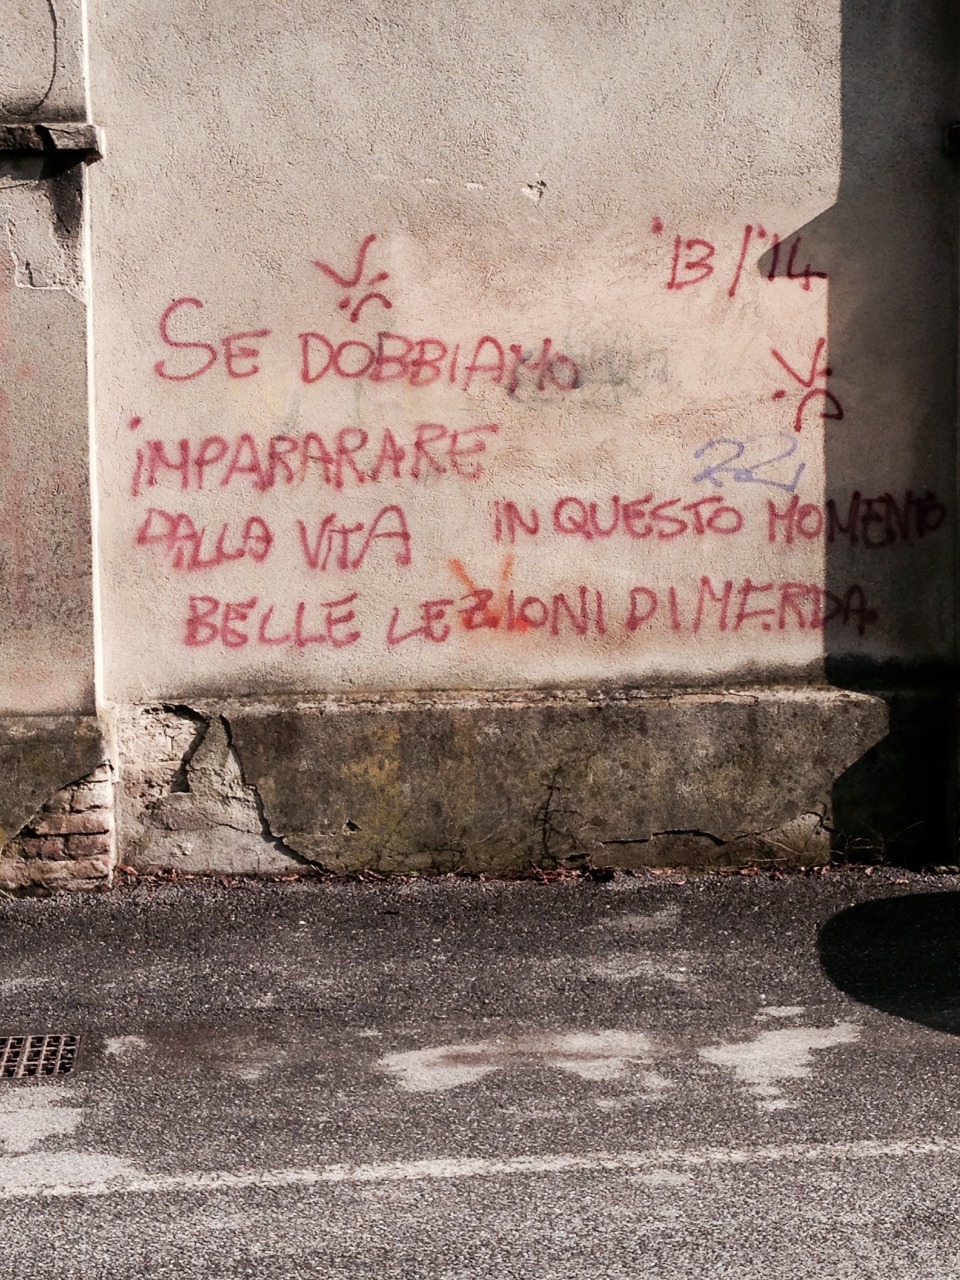 '13/'14
SE DOBBIAMO
IMPARARARE
DALLA VITA IN QUESTO MOMENTO
BELLE LEZIONI DI MERDA